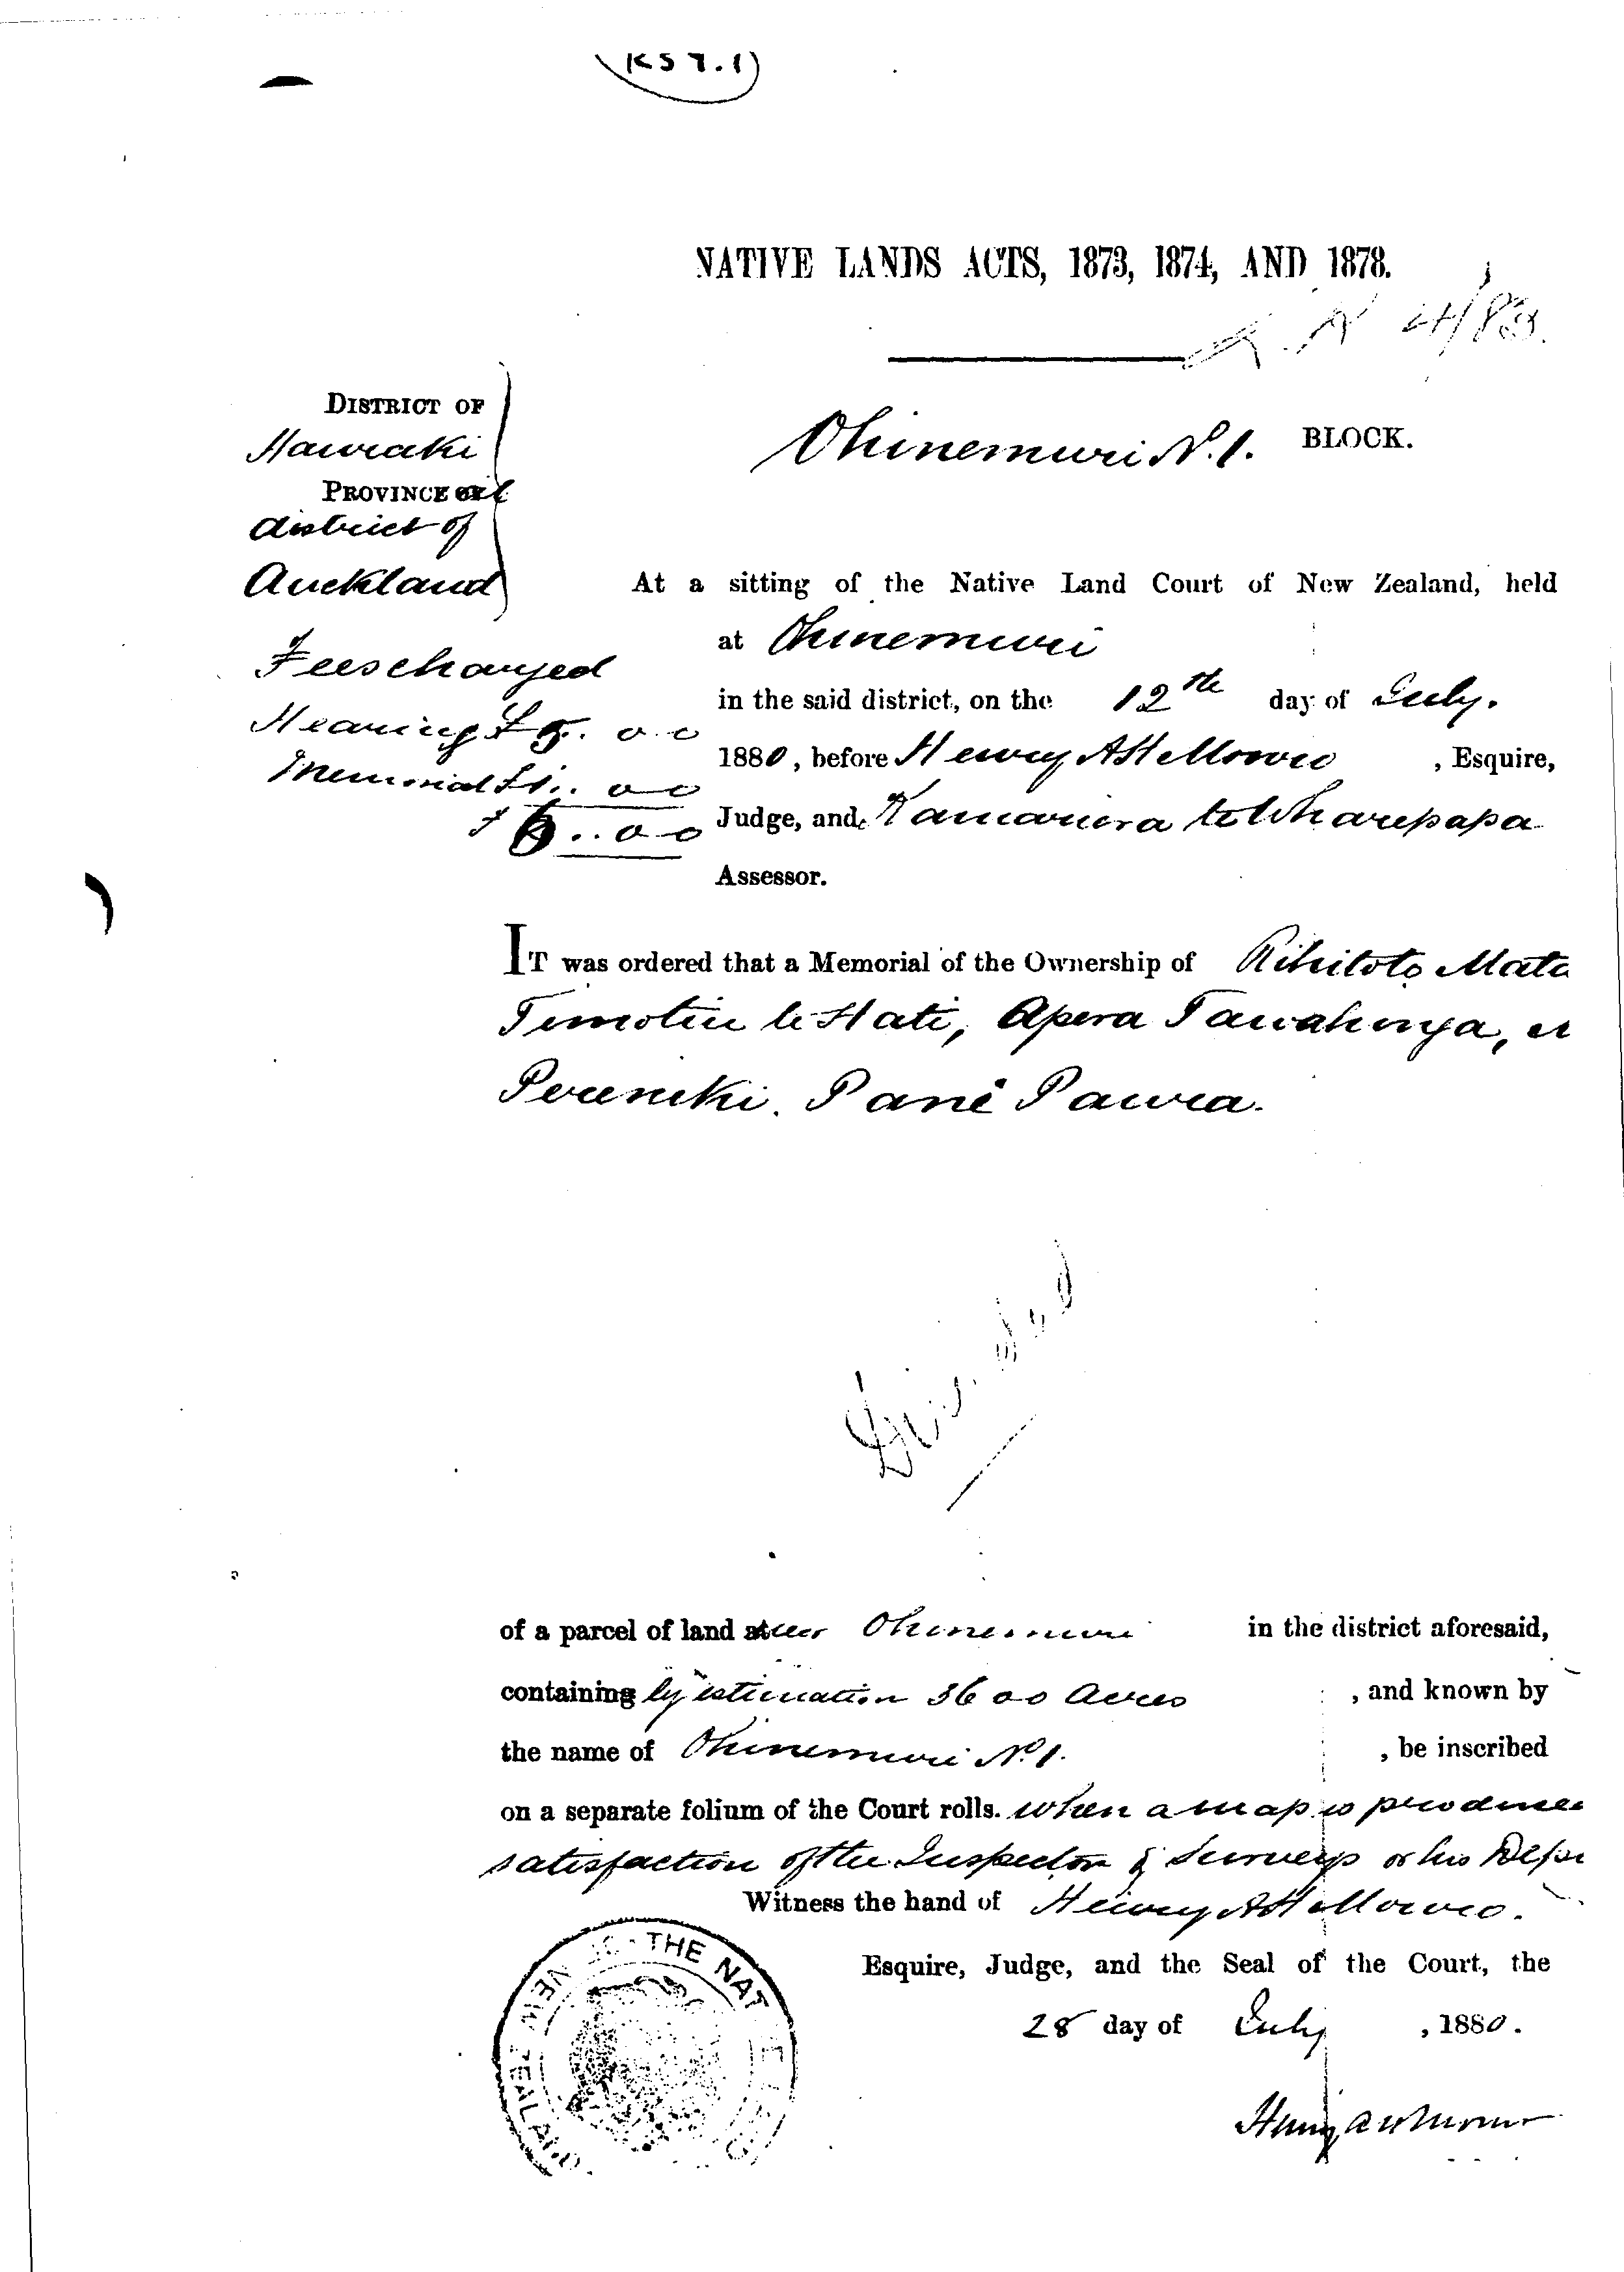 K57.1
NATIVE LANDS ACTS, 1873, 1874, AND 1878.
DISTRICT OF
Hauraki
PROVINCE OF
district of
Auckland
Ohinemuri N. 1. BLOCK.
At a sitting of the Native Land Court of New Zealand, held
at Ohinemuri
in the said district, on the 12th day of July.
1880, before Henry A H Monro, Esquire,
Judge, and Kamariera te Wharepapa
Assessor.
Fees charged
Hearing £ 5. 0 0
Memorial £1.. 0 0
£ 6..0 0
IT was ordered that a Memorial of the Ownership of Rihitoto Mata
te Hati, Apera Tawahinga,
Pereniki. Pane Paura.
Divided
of a parcel of land at Ohinemuri in the district aforesaid,
containing by estimation 3600 Acres, and known by
the name of Ohinemuri No. 1., be inscribed
on a separate folium of the Court rolls. when a map is produced
satisfaction of the Inspector of Surveys or his Depu
Witness the hand of Henry A H Monro.
Esquire, Judge, and the Seal of the Court, the
28 day of July, 1880.
THE NAT
NEW ZEALAND
Henry A H Monro